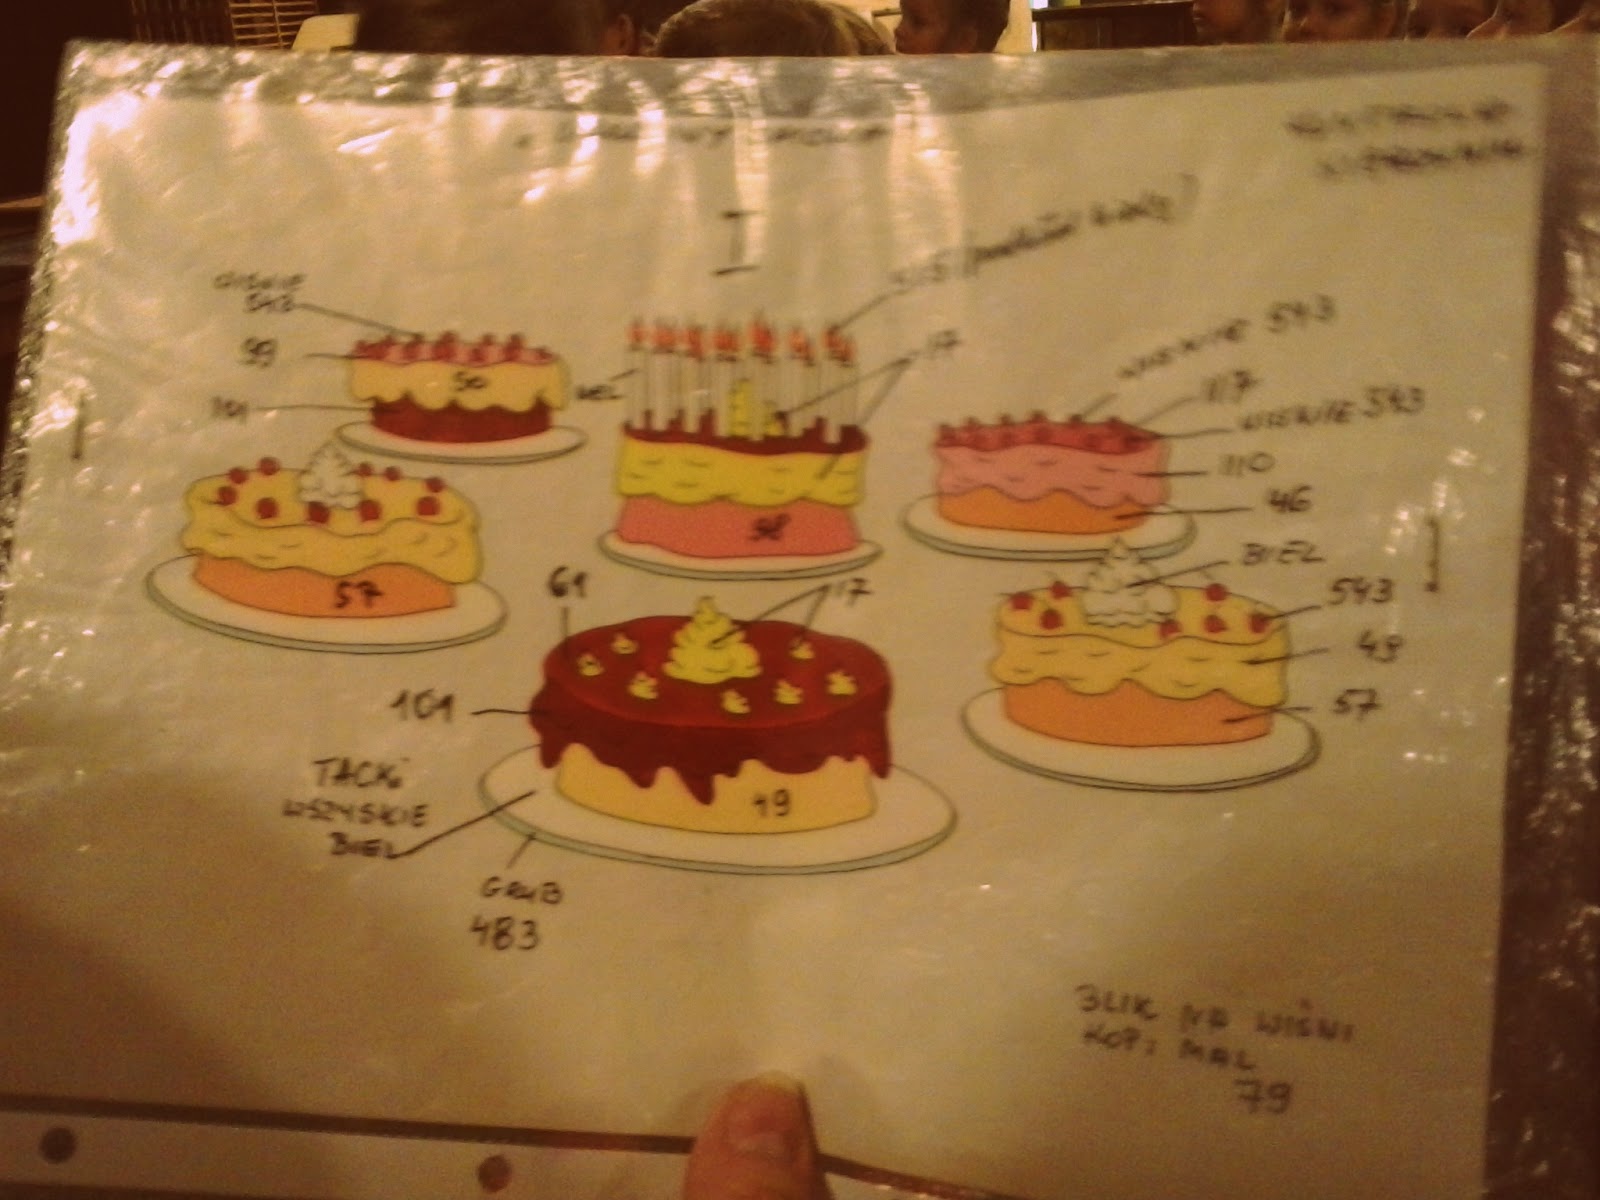 I
WIŚNIE
543
99
50
101
BIEL
17
98
WIŚNIE 543
117
WIŚNIE 543
110
46
57
BIEL
543
49
57
61
17
101
49
TACKi
WSZYSKIE
BIEL
GRUB
483
BLIK NA WIŚNI
KOP: MAL
79